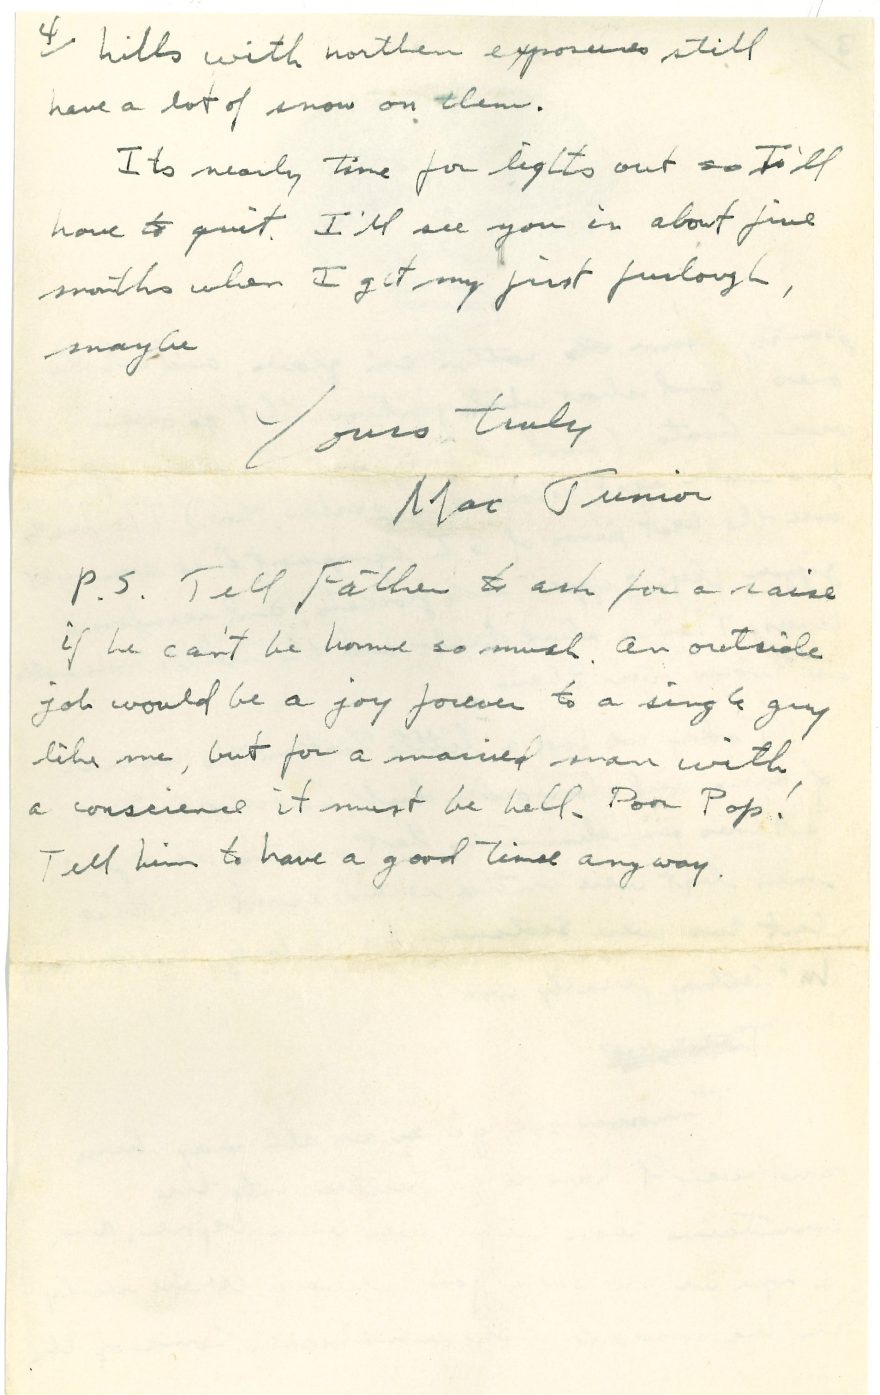 4/ hills with northen exposures still
have a lot of snow on them.
Its nearly time for lights out so I'll
have to quit. I'll see you in about five
months when I get my first furlough,
maybe
Yours truly
Mac Junior
P.S. Tell Father to ask for a raise
if he can't be home so much. An outside
job would be a joy forever to a single guy
like me, but for a married man with
a conscience it must be hell. Poor Pop!
Tell him to have a good time anyway.